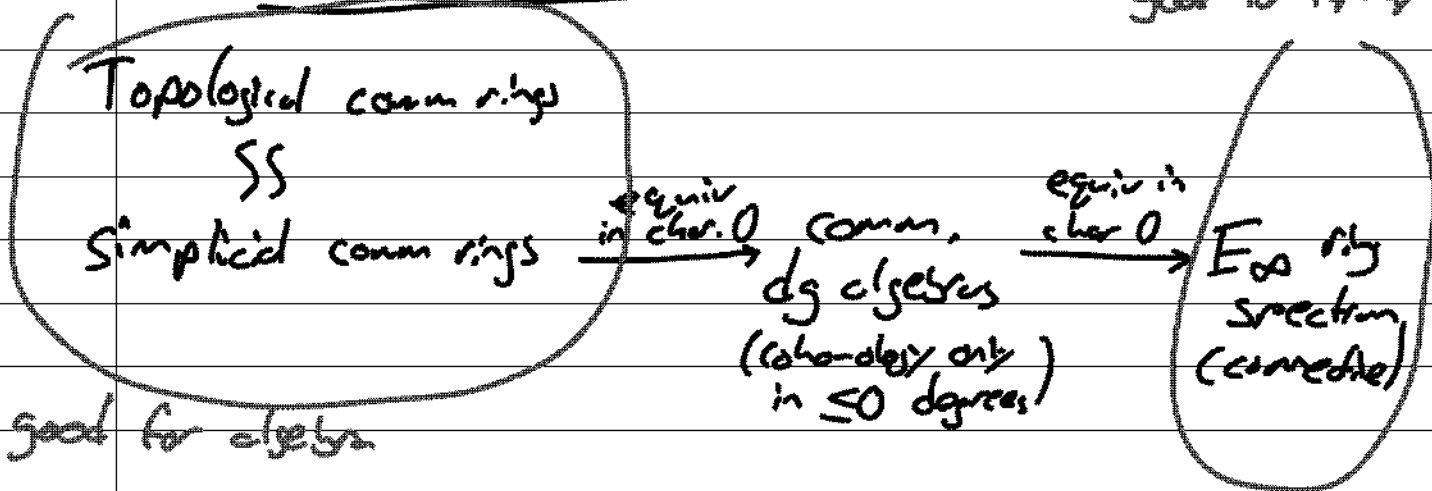 good
Topological comm rings
SS
simplicial comm rings
equiv
in char. 0
comm.
dg algebras
(cohomology only
in ≤0 degrees)
equiv in
char 0
E∞ ring
spectrum
(connective)
good for algebra